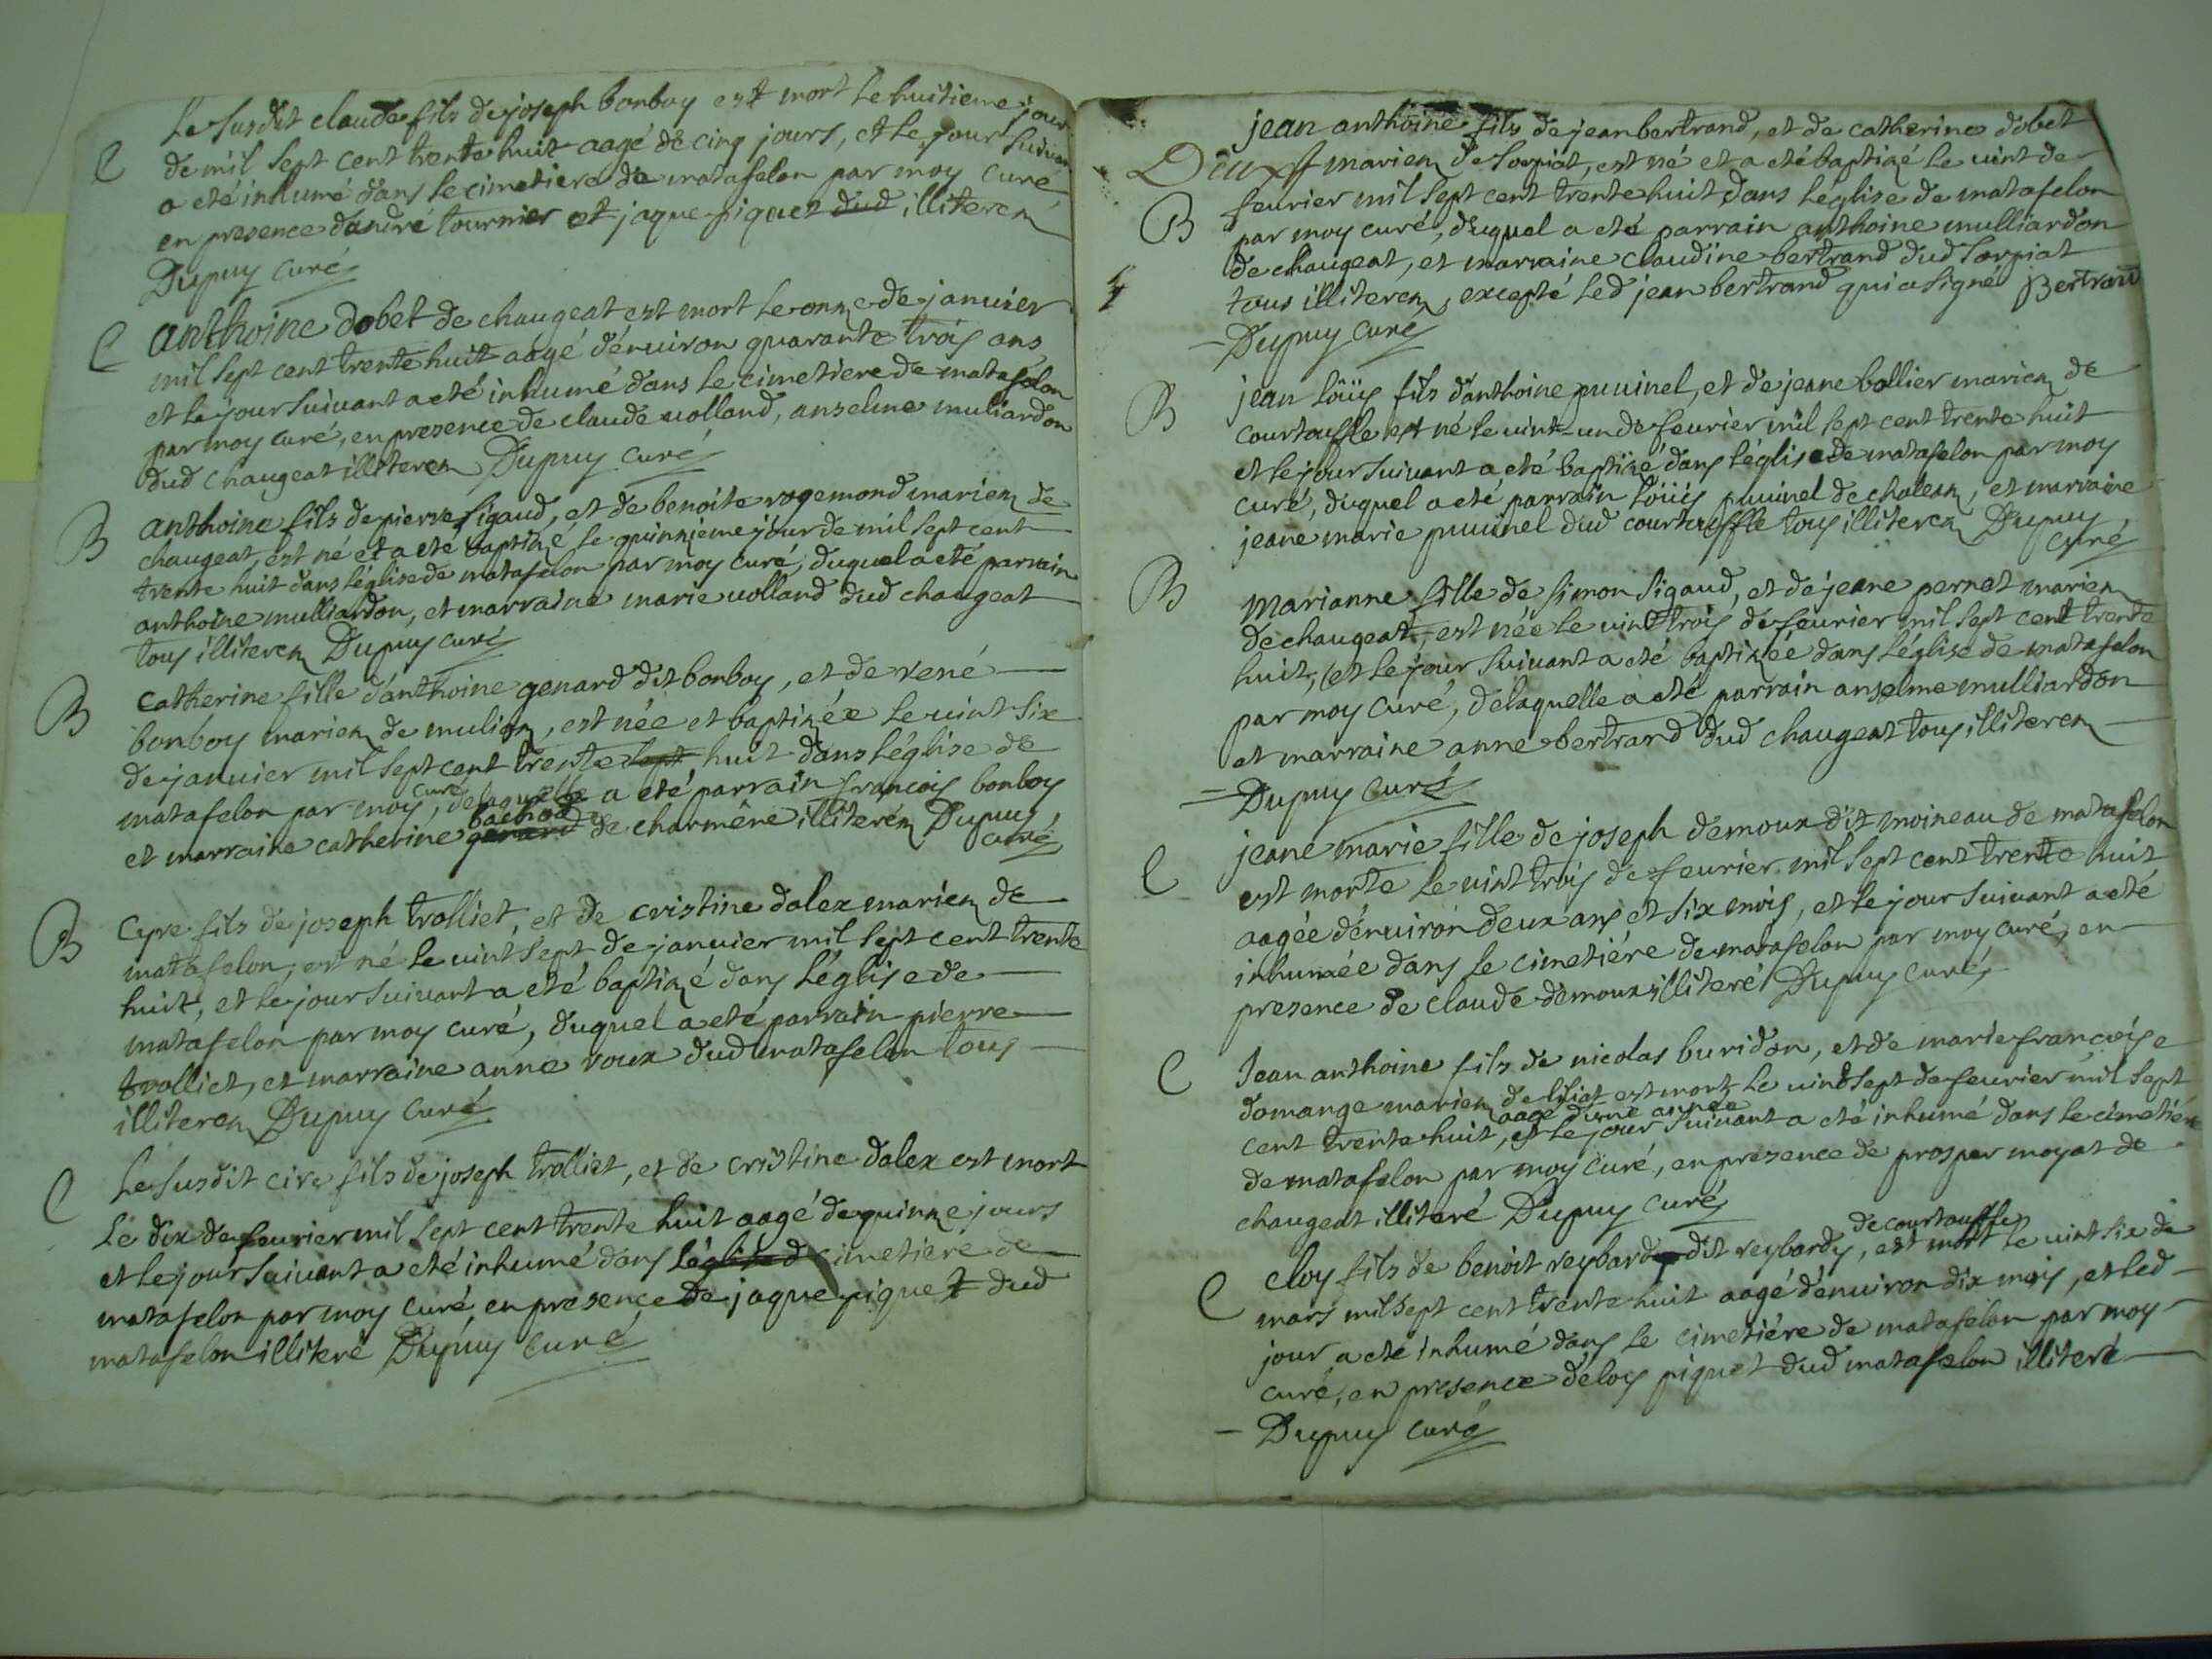 Le susdit claude fils de joseph bonboy est mort le huitieme jour
C
de mil sept cent trente huit aagé de cinq jours, et le jour suivan
a eté inhumé dans le cimetiere de matafelon par moy curé
en presence d'andré tournier et jaque piquet dud illiterez
Dupuy curé
C
anthoine dobet de chaugeat est mort le onze de januier
mil sept cent trente huit aagé d'enuiron quarante trois ans
et le jour suiuant a eté inhumé dans le cimetiere de matafelon
par moy curé, en presence de claude uolland, anselme muliardon
dud chaugeat illiterez Dupuy curé
B
anthoine fils de pierre sigaud, et de benoite rogemond mariez de
chaugeat, est né et a eté baptizé le quinzieme jour de mil sept cent
trente huit dans l'église de matafelon par moy curé, duquel a eté parrain
anthoine mulliardon, et marraine marie uolland dud chaugeat
tous illiterez Dupuy curé
B
catherine fille d'anthoine genard dit bonboy, et de rené
bonboy mariez de mulion, est née et baptizée le uint six
de januier mil sept cent trente sept huit dans l'église de
matafelon par moy curé, delaquelle a eté parrain françois bonboy
et marraine catherine genard bachod de charmêne illiterez Dupuy
curé
B
Cyre fils de joseph trolliet, et de cristine dalex mariez de
matafelon, est né le uint sept de januier mil sept cent trente
huit, et le jour suiuant a eté baptizé dans l'église de
matafelon par moy curé, duquel a eté parrain pierre
trolliet, et marraine anne roux dud matafelon tous
illiterez Dupuy curé
C
Le susdit cire fils de joseph trolliet, et de cristine dalex est mort
le dix de feurier mil sept cent trente huit aagé de quinze jours
et le jour suiuant a eté inhumé dans l'église d cimetiere de
matafelon par moy curé en presence de jaque piquet dud
matafelon illiteré Dupuy curé
jean anthoine fils de jean bertrand, et de catherine dobet
Deux ff mariez de sorpiat, est né et a eté baptizé le uint de
B
feurier mil sept cent trente huit dans l'église de matafelon
par moy curé, duquel a eté parrain anthoine mulliardon
de chaugeat, et marraine claudine bertrand dud sorpiat
tous illiterez, excepté led jean bertrand qui a signé Bertrand
Dupuy curé
B
jean loüys fils d'anthoine puuinel, et de jeane bollier mariez de
courtouffle est né le uint-un de feurier mil sept cent trente huit
et le jour suiuant a eté baptizé dans l'église de matafelon par moy
curé, duquel a eté parrain loüys puuinel de choleaz, et marraine
jeane marie puuinel dud courtouffle tous illiterez Dupuy
curé
B
Marianne fille de simon sigaud, et de jeane pernet mariez
de chaugeat, est née le uint trois de feurier mil sept cent trente
huit, et le jour suiuant a eté baptizée dans l'église de matafelon
par moy curé, delaquelle a eté parrain anselme mulliardon
et marraine anne bertrard dud chaugeat tous illiterez
Dupuy curé
C
jeane marie fille de joseph demoux dit moineau de matafelon
est morte le uint trois de feurier mil sept cent trente huit
aagée d'enuiron deux ans et six mois, et le jour suiuant a eté
inhumée dans le cimetiére de matafelon par moy curé, en
presence de claude demoux illiteré Dupuy curé
C
Jean anthoine fils de nicolas buridon, et de marie françoise
domange mariez de est mort le uint sept de feurier mil sept
cent trente huit, aagé d'une année et le jour suiuant a eté inhumé dans le cimetiére
de matafelon par moy curé, en presence de prosper moyat de
chaugeat illiteré Dupuy curé
C
eloy fils de benoit reybard dit reybardy, de courtouffle, est mort le uint six de
mars mil sept cent trente huit aagé d'enuiron dix mois, et led
jour a eté inhumé dans le cimetiére de matafelon par moy
curé, en presence d'eloy piquet dud matafelon illiteré
Dupuy curé